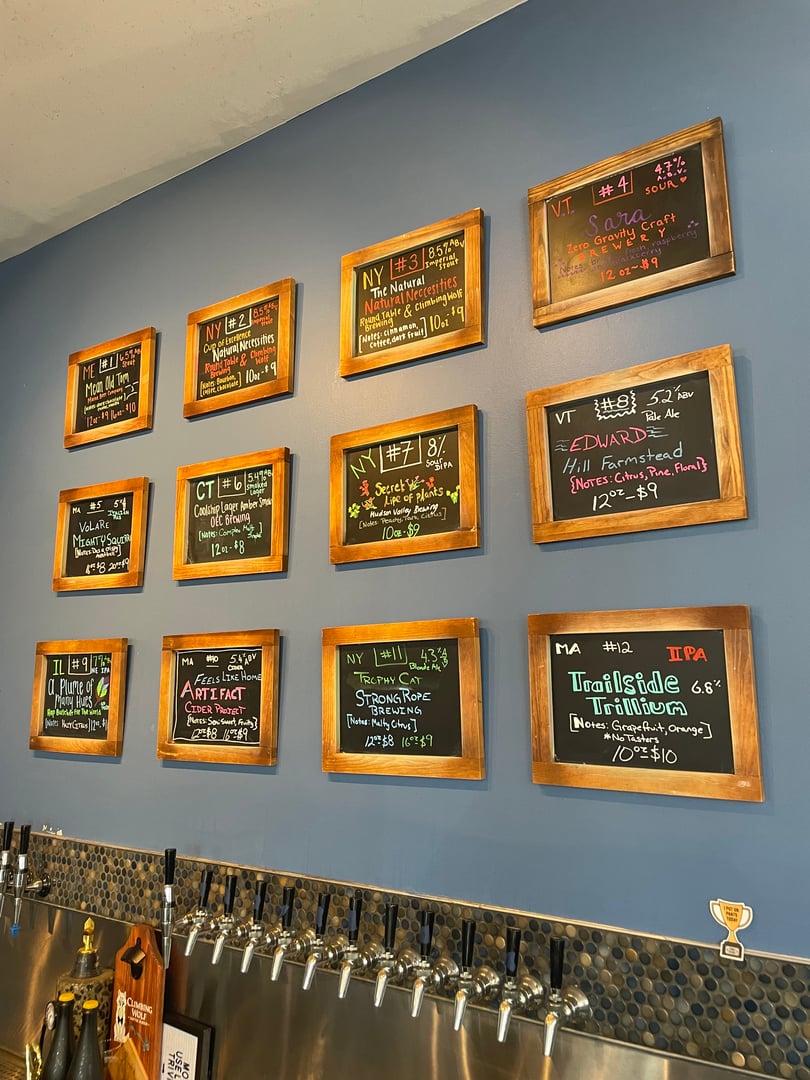 ME #1 6.5% ABV
Stout
Mean Old Tom
Maine Beer Company
12oz-$9 16oz-$10
NY #2 8.5% ABV
Imperial Stout
Cup of Excellence
Natural Necessities
Round Table & Climbing
Brewing Wolf
[Notes: Bourbon,
Coffee, Chocolate] 10oz-$9
NY #3 8.5% ABV
Imperial Stout
The Natural
Natural Neccesities
Round Table & Climbing Wolf
Brewing
[Notes: Cinnamon,
Coffee, dark fruit] 10oz-$9
V.T. #4 4.7%
A.B.V.
SOUR
Sara
Zero Gravity Craft
BREWERY
raspberry
12oz-$9
MA #5
VOLARE
MIGHTY SQUIRREL
CT #6 5.4% ABV
Smoked
Lager
Coolship Lager Amber Smoke
OEC Brewing
[Notes: Complex Malt
12oz-$8
NY #7 8%
Sour
IPA
Secret
Life of plants
Hudson Valley Brewing
[Notes: Peachy, Tart, Citrus]
10oz-$9
VT #8 5.2% ABV
Pale Ale
EDWARD
Hill Farmstead
{NOTES: Citrus, Pine, Floral}
12oz-$9
IL #9 7%
NE IPA
A Plume of
Many Hues
Hop Butcher For The World
MA #10 5.4% ABV
CIDER
FEELS LIKE HOME
ARTIFACT
CIDER PROJECT
[NOTES: Semi Sweet, Fruity]
12oz$8 16oz$9
NY #11 4.3%
Blonde Ale
TROPHY CAT
STRONG ROPE
BREWING
[Notes: Malty Citrus]
12oz $8 16oz$9
MA #12 IIPA
Trailside 6.8%
Trillium
[Notes: Grapefruit, Orange]
*No Tasters
10oz-$10
I PUT ON
PANTS
TODAY
CLIMBING
WOLF